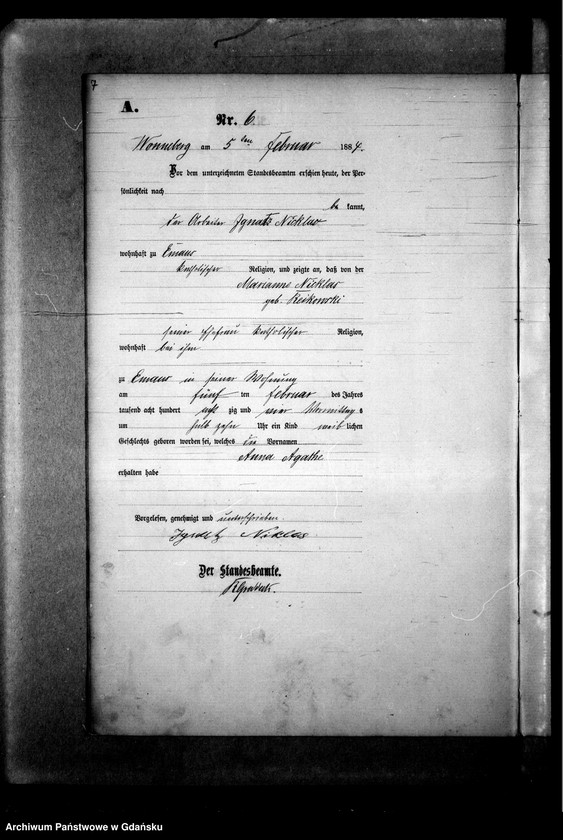 7
A.
Nr. 6
Wonneberg am 5ten Februar 1884.
Vor dem unterzeichneten Standesbeamten erschien heute, der Per-
sönlichkeit nach
be kannt,
der Arbeiter Ignatz Nicklas
wohnhaft zu Emaus
katholischer Religion, und zeigte an, daß von der
Marianne Nicklas
geb.
seiner Ehefrau katholischer Religion,
wohnhaft bei ihm
zu Emaus in seiner Wohnung
am fünf ten Februar des Jahres
tausend acht hundert acht zig und vier Vormittags
um halb zehn Uhr ein Kind weib lichen
Geschlechts geboren worden sei, welches die Vornamen
Anna Agathe
erhalten habe
Vorgelesen, genehmigt und unterschrieben
Ignatz Niklas
Der Standesbeamte.
Archiwum Państwowe w Gdańsku